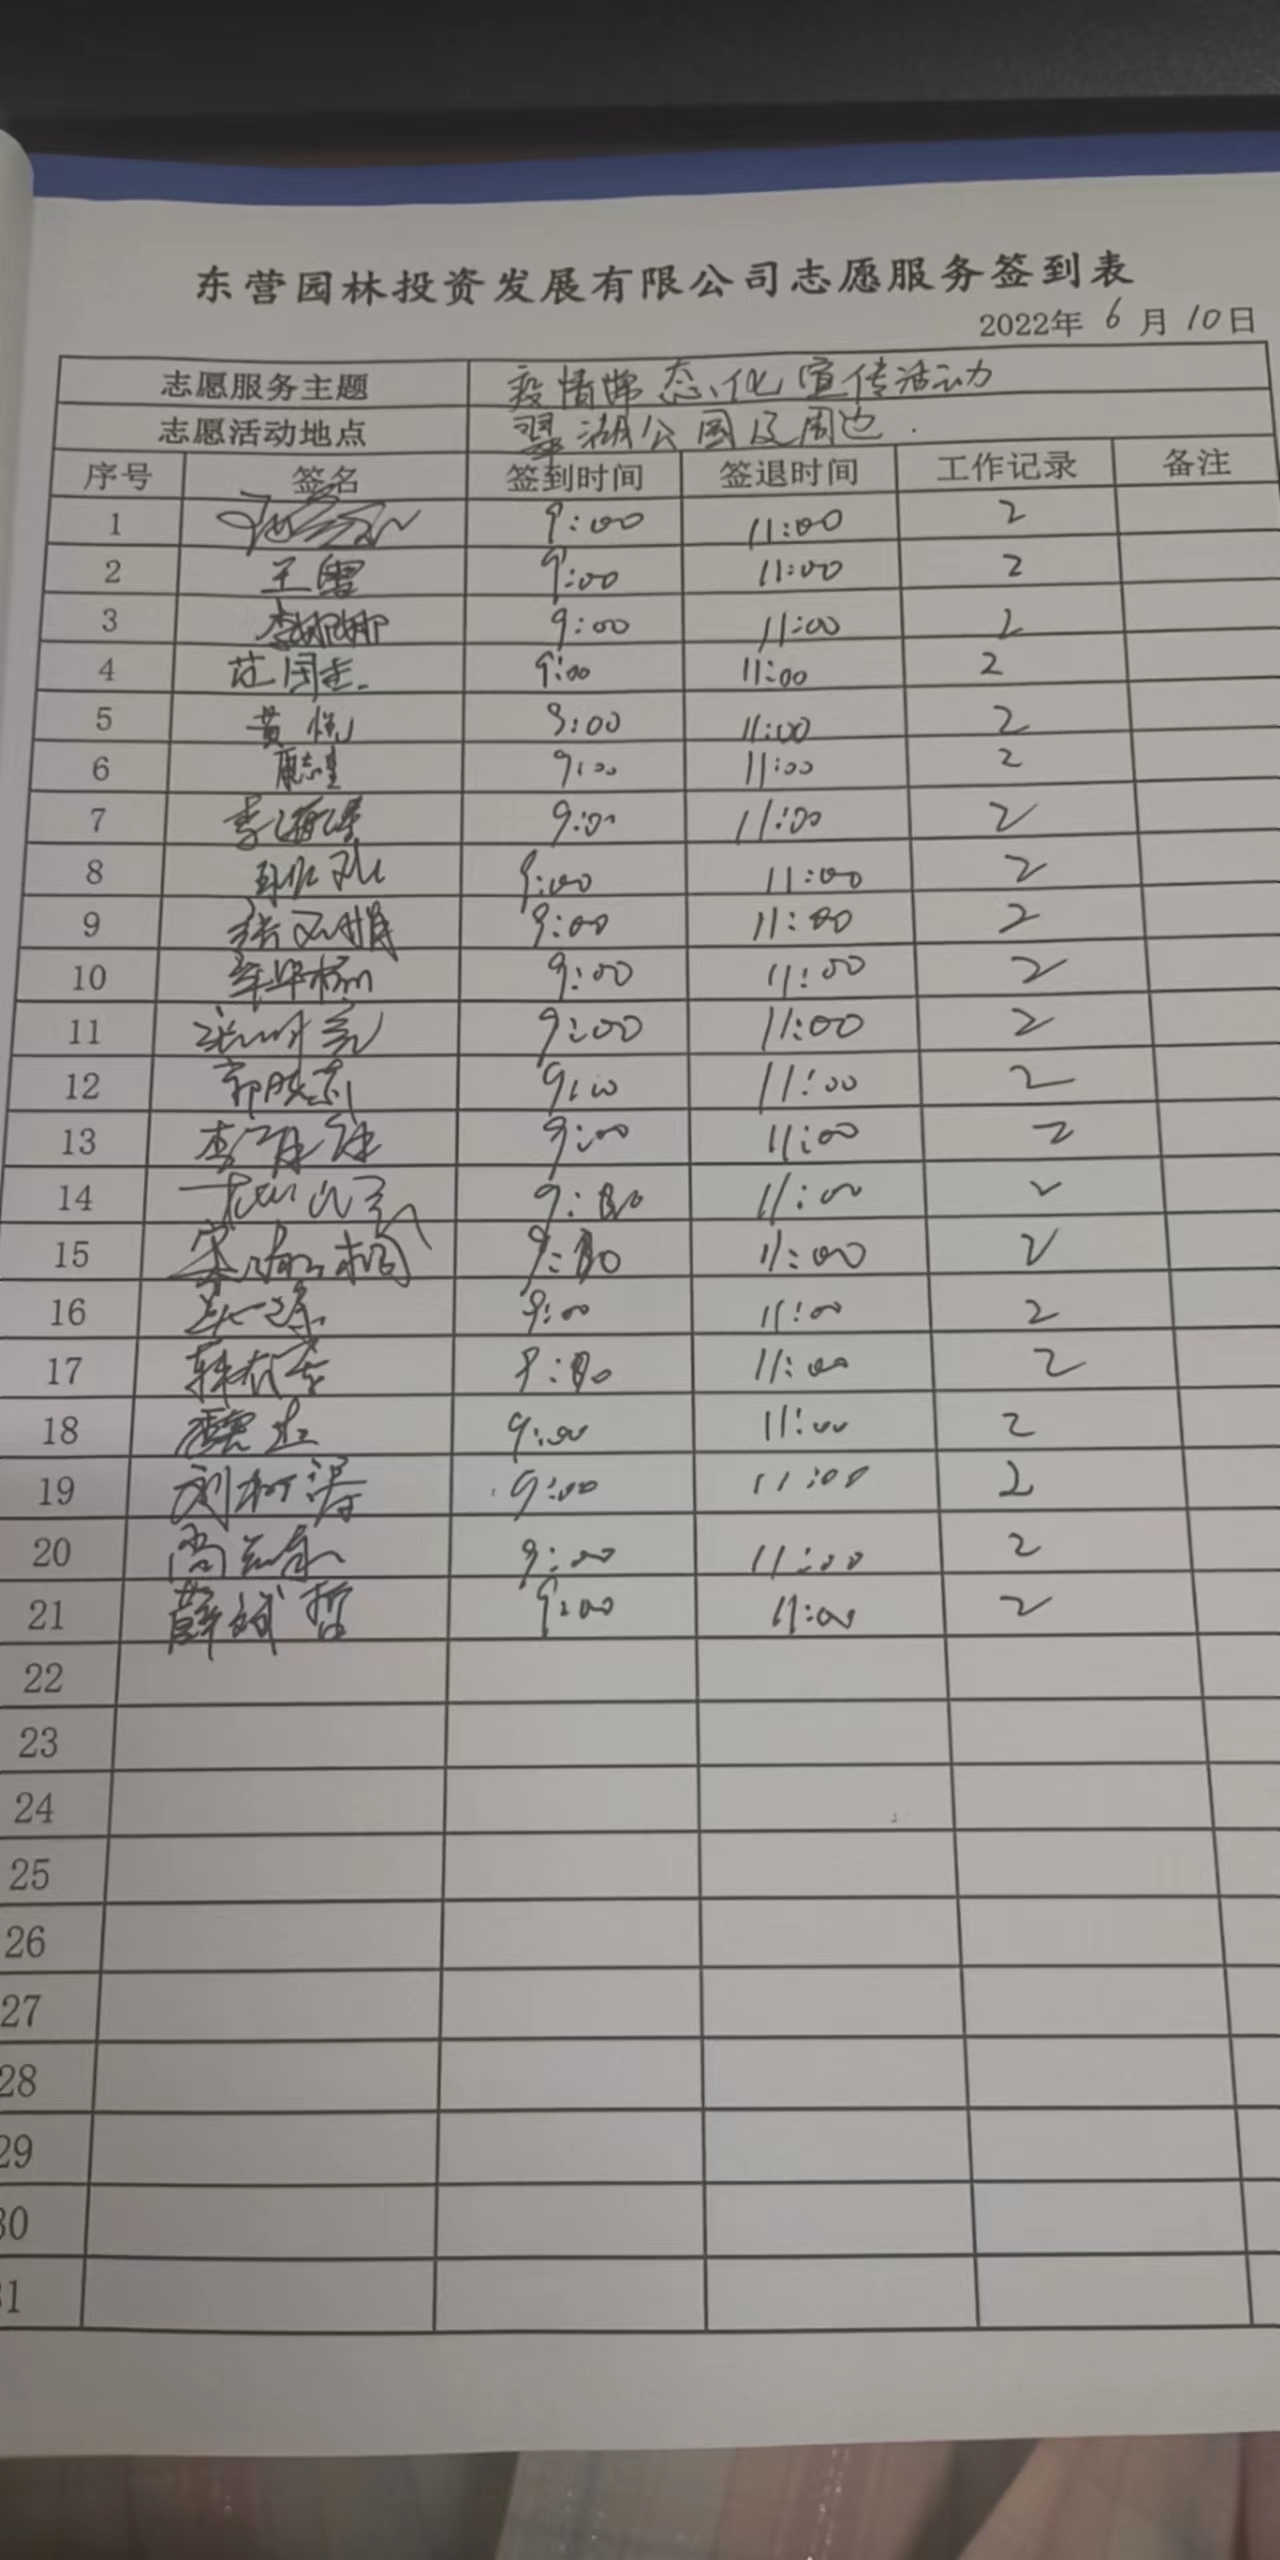 东营园林投资发展有限公司志愿服务签到表
2022年 6 月 10 日
志愿服务主题 疫情常态化宣传活动
志愿活动地点 翠湖公园及周边.
序号 签名 签到时间 签退时间 工作记录 备注
1 9:00 11:00 2
2 王雪 9:00 11:00 2
3 李娜娜 9:00 11:00 2
4 范国 9:00 11:00 2
5 黄 9:00 11:00 2
6 康志 9:00 11:00 2
7 李海 9:00 11:00 2
8 9:00 11:00 2
9 张 9:00 11:00 2
10 9:00 11:00 2
11 9:00 11:00 2
12 郭晓 9:00 11:00 2
13 李 9:00 11:00 2
14 9:00 11:00 2
15 9:00 11:00 2
16 9:00 11:00 2
17 韩 9:00 11:00 2
18 9:00 11:00 2
19 刘树涛 9:00 11:00 2
20 尚 9:00 11:00 2
21 薛斌哲 9:00 11:00 2
22
23
24
25
26
27
28
29
30
31